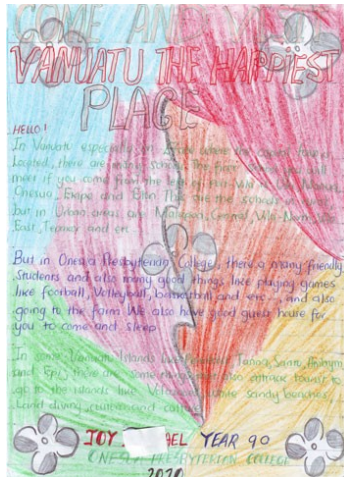 COME AND VISIT
VANUATU THE HAPPIEST
PLACE
HELLO!
In Vanuatu especially in Efate where the capital
Located, there are many schools. The first school you will
meet if you come from the town of Port Vila is
Onesua, Ekipe and Eton. This are the schools in rural
but in Urban areas are Malapoa, Central, Vila North, Vila
East, Tebakor and etc.
But in Onesua Presbyterian College, there a many friendly
Students and also many good things like playing games
like football, Volleyball, basketball and etc.., and also
going to the farm. We also have good guest house for
you to come and sleep.
In some Vanuatu Islands like Tanna, Santo, Ambrym,
and Epi, there are some also attract tourist to
go to the islands like Volcanoes, white sandy beaches,
Land diving, customs and culture.
JOY. BEL YEAR 90
ONESUA PRESBYTERIAN COLLEGE
2020